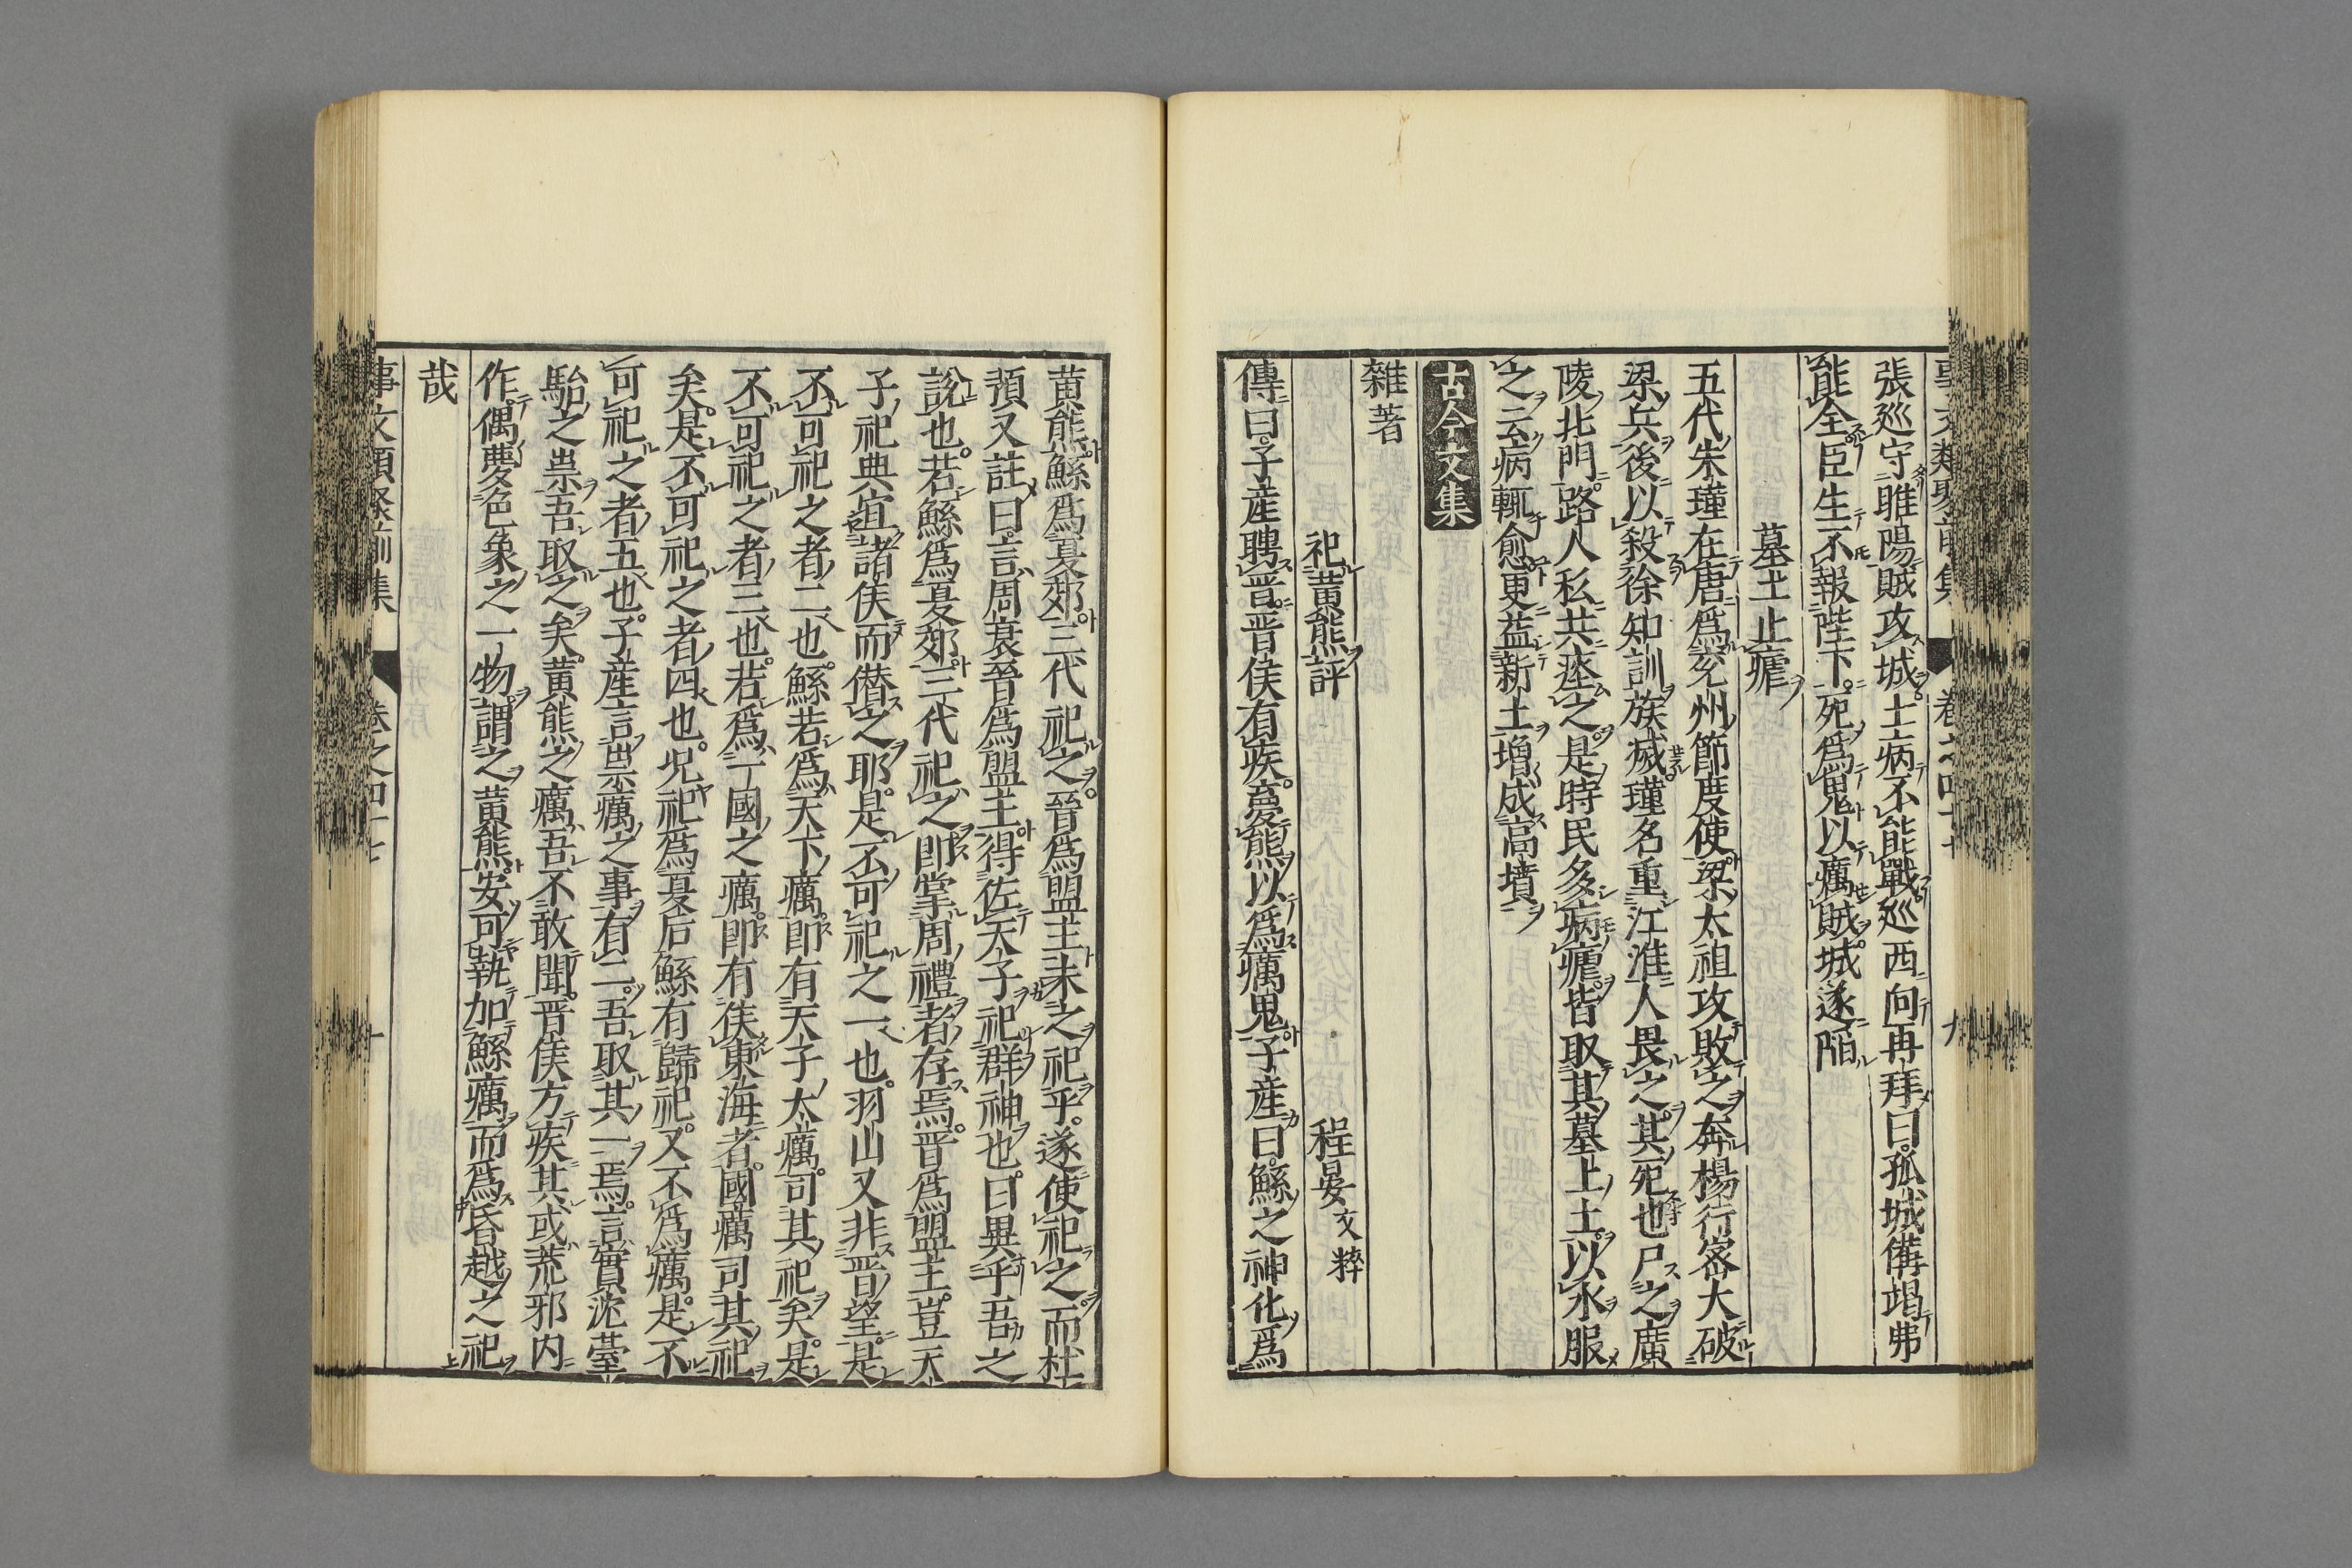 事文類聚前集　卷之四十七　九
張巡守睢陽賊攻城士病不能戰巡西向再拜曰孤城備竭弗
能全臣生不報陛下死爲鬼以癘賊城遂陷
墓土止瘧
五代朱瑾在唐爲兖州節度使梁太祖攻敗之奔楊行密大破
梁兵後以殺徐知訓族滅瑾名重江淮人畏之其死也尸之廣
陵北門路人私共瘞之是時民多病瘧皆取其墓上土以水服
之云病輒愈更益新土增成高墳
古今文集
雜著
祀黃熊評　程晏文粹
傳曰子產聘晋晋侯有疾夢熊以爲癘鬼子產曰鯀之神化爲
黃熊鯀爲夏郊三代祀之晉爲盟主未之祀乎遂使祀之而杜
預又註曰言周衰晉爲盟主得佐天子祀群神也曰異乎吾之
說也若鯀爲夏郊三代祀之即掌周禮者存焉晋爲盟主豈天
子祀典宜諸侯而僭之耶是不可祀之一也羽山又非晋望是
不可祀之者二也鯀若爲天下癘即有天子太癘司其祀矣是
不可祀之者三也若爲一國之癘即有侯東海者國癘司其祀
矣是不可祀之者四也況祀爲夏后鯀有歸祀又不爲癘是不
可祀之者五也子產言祟癘之事有二吾取其一焉言實沈臺
駘之祟吾取之矣黃熊之癘吾不敢聞晋侯方疾其或荒邪内
作偶夢色象之一物謂之黃熊安可執加鯀癘而爲昏越之祀
哉
事文類聚前集　卷之四十七　十